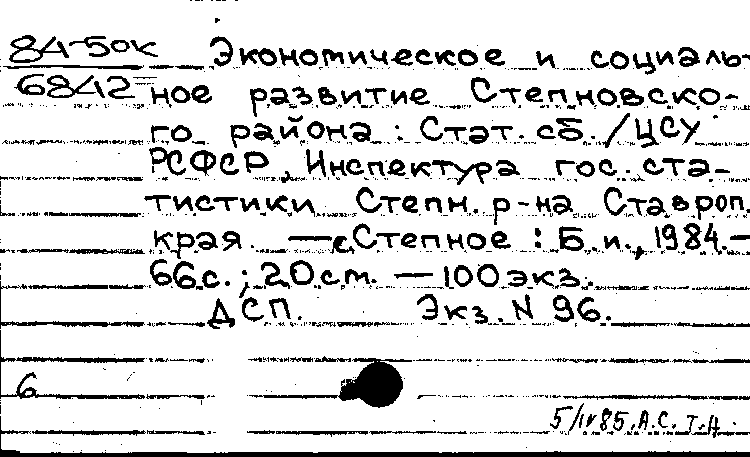 84-50к Экономическое и социаль-
6842 ное развитие Степновско-
го района : Стат. сб. / ЦСУ
РСФСР, Инспектура гос. ста-
тистики Степн. р-на Ставроп.
края. — с. Степное : Б.и., 1984.—
66 с. ; 20 см. — 100 экз.
ДСП. Экз. N 96.
6
5/IV 85. А.С. Т.А.